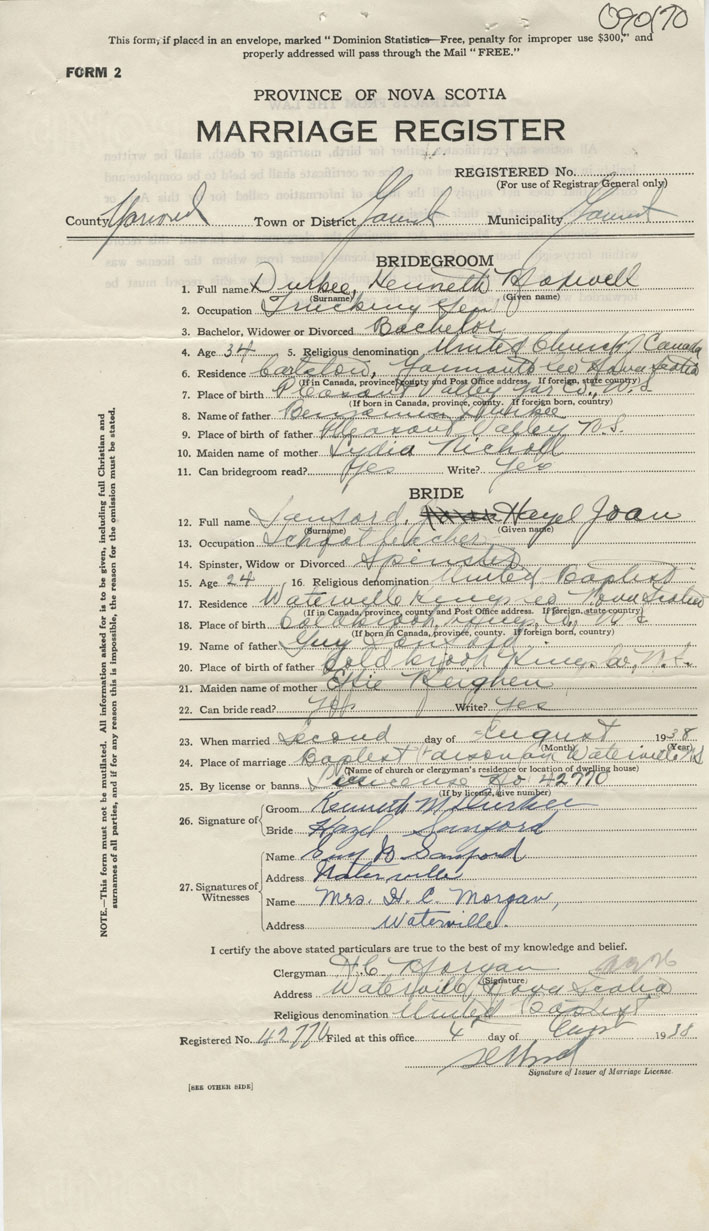 090170
This form, if placed in an envelope, marked "Dominion Statistics—Free, penalty for improper use $300," and
properly addressed will pass through the Mail "FREE."
FORM 2
PROVINCE OF NOVA SCOTIA
MARRIAGE REGISTER
REGISTERED No.
(For use of Registrar General only)
County Town or District Municipality
BRIDEGROOM
1. Full name Durkee, Kenneth Maxwell
(Surname) (Given name)
2. Occupation Trucking
3. Bachelor, Widower or Divorced Bachelor
4. Age 34 5. Religious denomination United Church of Canada
6. Residence Carleton, Yarmouth Co Nova Scotia
(If in Canada, province, county and Post Office address. If foreign, state country)
7. Place of birth Pleasant Valley Yar Co., N.S
(If born in Canada, province, county. If foreign born, country)
8. Name of father Benjamin Durkee
9. Place of birth of father Pleasant Valley N.S.
10. Maiden name of mother Lydia Nickoll
11. Can bridegroom read? Yes Write? Yes
BRIDE
12. Full name Sanford, Hazel Joan
(Surname) (Given name)
13. Occupation School teacher
14. Spinster, Widow or Divorced Spinster
15. Age 24 16. Religious denomination United Baptist
17. Residence Waterville Kings co Nova Scotia
(If in Canada, province, county and Post Office address. If foreign, state country)
18. Place of birth Coldbrook, Kings Co, N.S
(If born in Canada, province, county. If foreign born, country)
19. Name of father Guy Sanford
20. Place of birth of father Coldbrook Kings Co. N.S.
21. Maiden name of mother Effie Keighen
22. Can bride read? Yes Write? Yes
23. When married Second day of August 1938
(Month) (Year)
24. Place of marriage Baptist Parsonage Waterville N.S
(Name of church or clergyman's residence or location of dwelling house)
25. By license or banns License No. 42770
(If by license, give number)
26. Signature of Groom Kenneth M Durkee
Bride Hazel Sanford
27. Signatures of Witnesses Name Guy B Sanford
Address Waterville
Name Mrs. H. C. Morgan,
Address Waterville.
I certify the above stated particulars are true to the best of my knowledge and belief.
Clergyman H.C. Morgan
(Signature)
Address Waterville, Nova Scotia
Religious denomination United Baptist
Registered No. 42770 Filed at this office 4 day of Augst 1938
Signature of Issuer of Marriage License.
[SEE OTHER SIDE]
NOTE.—This form must not be mutilated. All information asked for is to be given, including full Christian and
surnames of all parties, and if for any reason this is impossible, the reason for the omission must be stated.